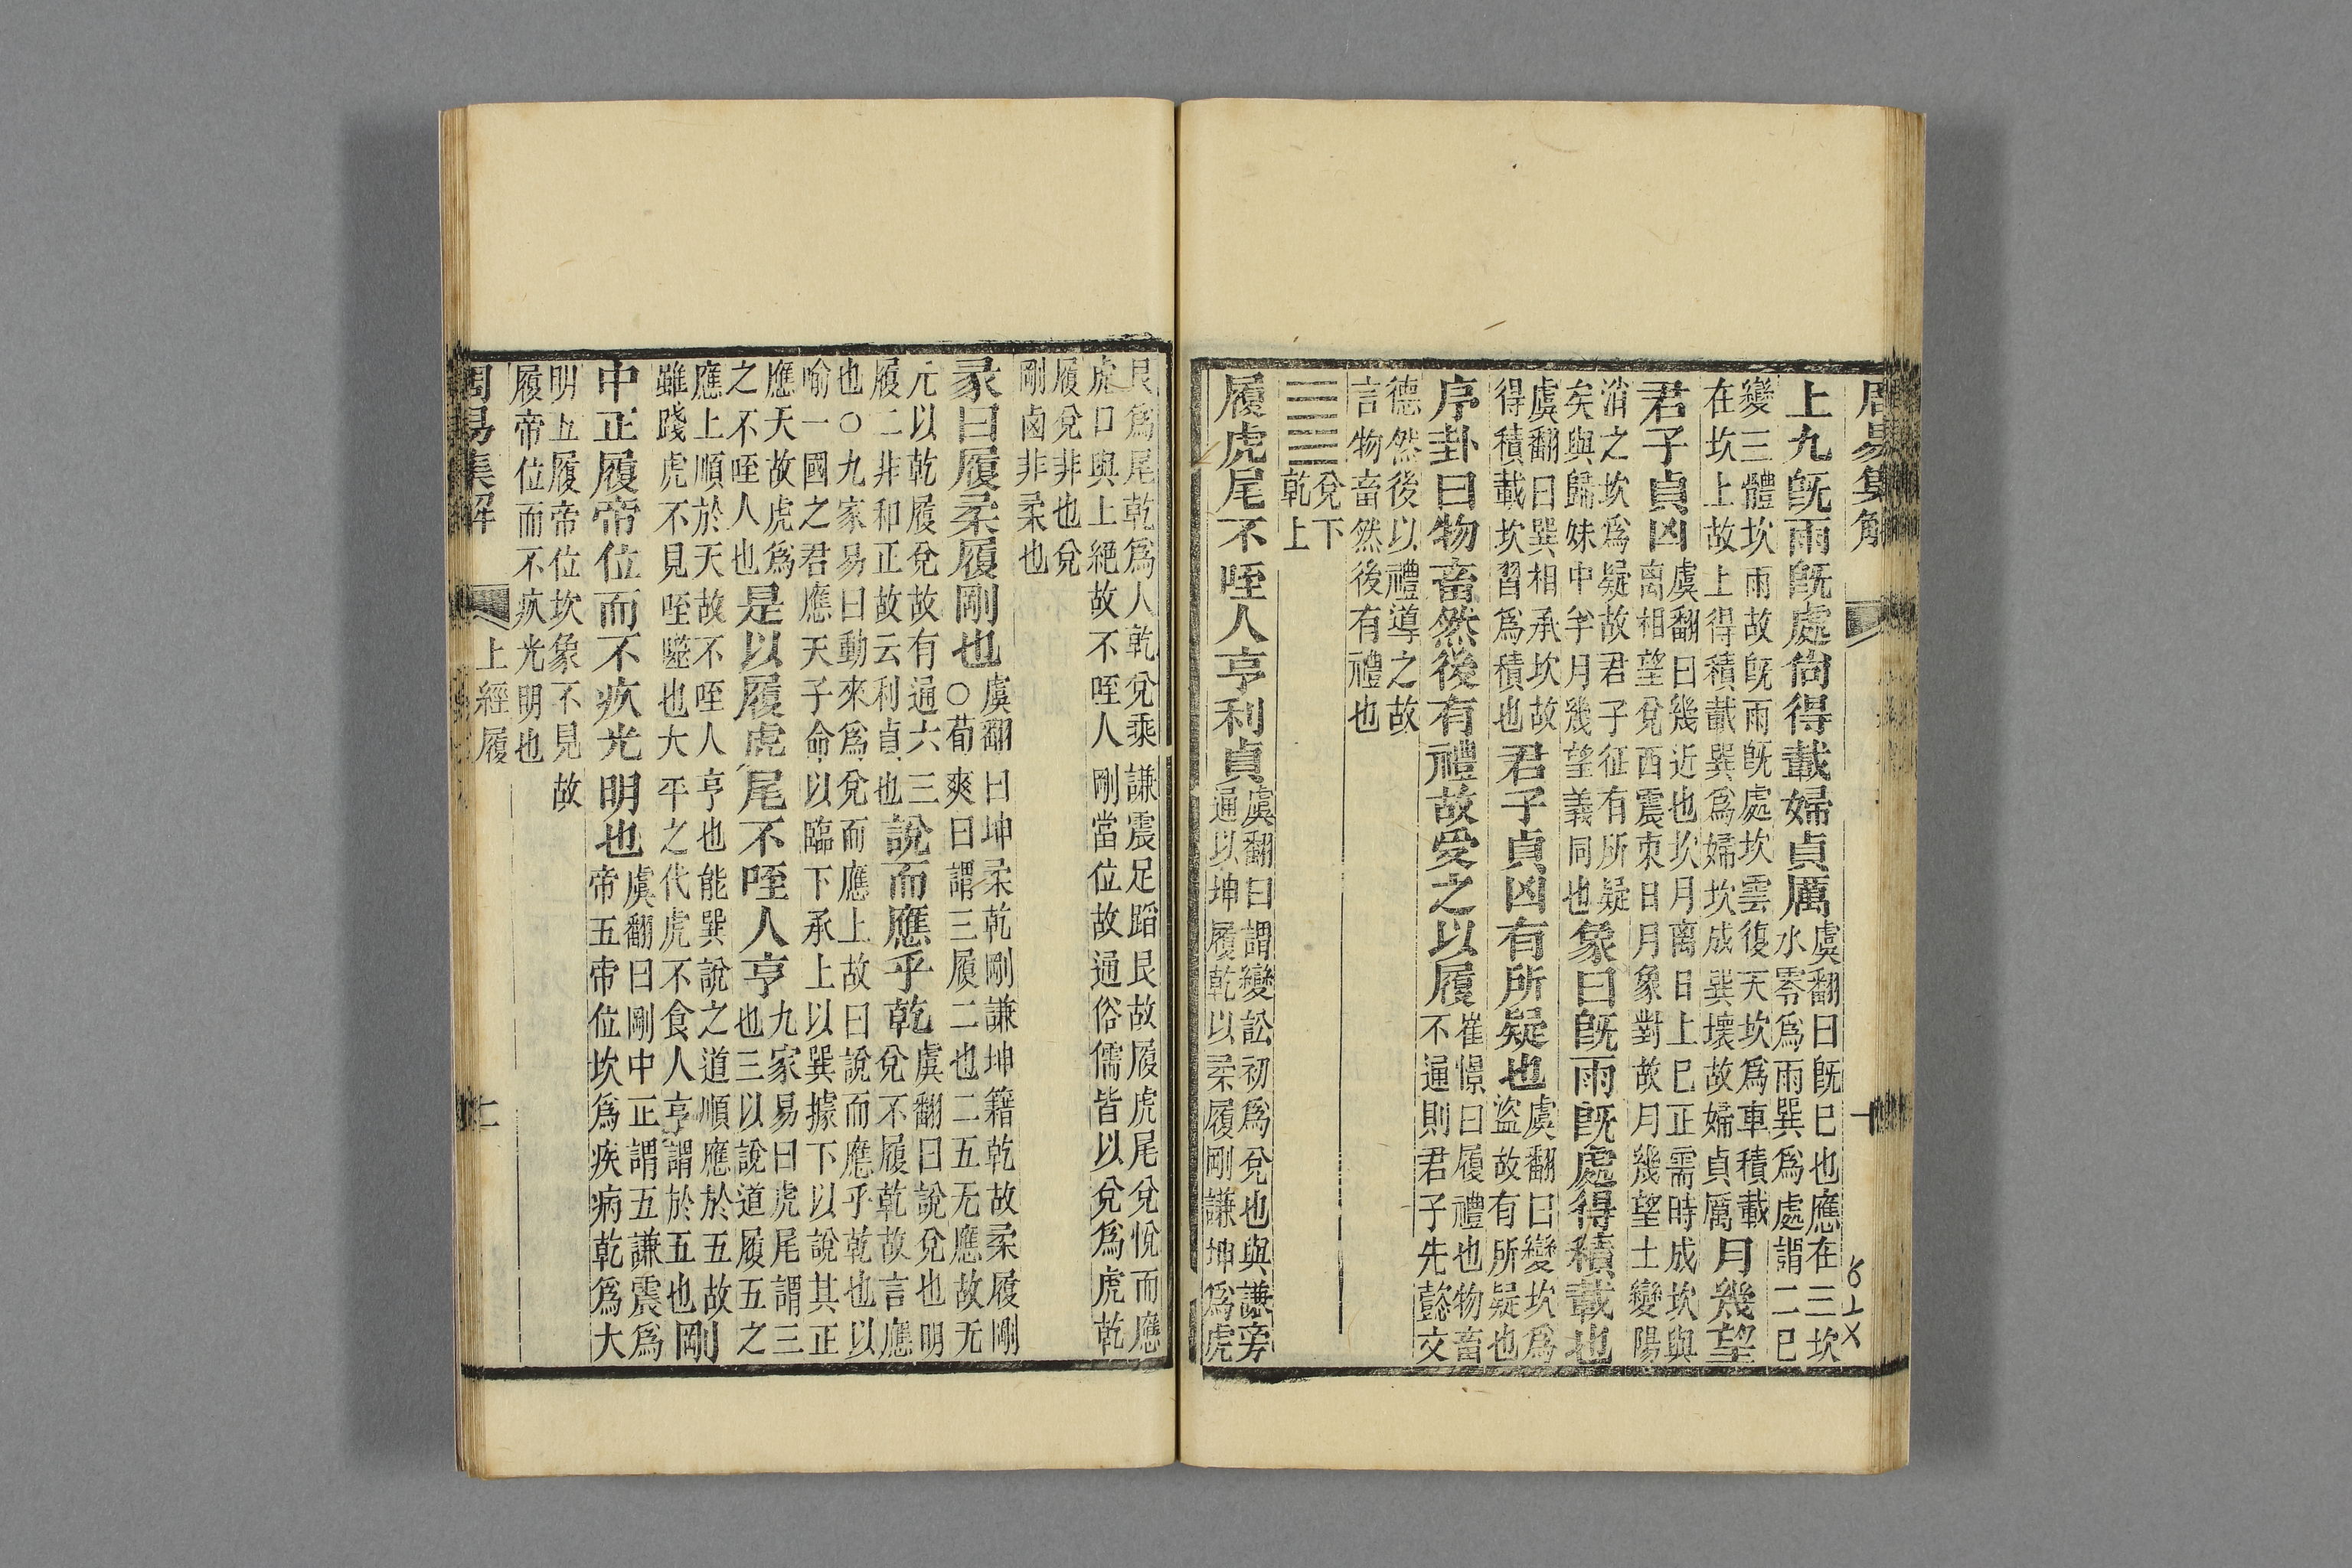 周易集解
上九旣雨旣處尙得載婦貞厲虞翻曰旣巳也應在三坎水零爲雨巽爲處謂二巳
變三體坎雨故旣雨旣處坎雲復天坎爲車積載在坎上故上得積載巽爲婦坎成巽壞故婦貞厲月幾望
君子貞凶虞翻曰幾近也坎月离日上巳正需時成坎與离相望兌西震東日月象對故月幾望土變陽
消之坎爲疑故君子征有所疑矣與歸妹中孚月幾望義同也象曰旣雨旣處得積載也
虞翻曰巽相承坎故得積載坎習爲積也君子貞凶有所疑也虞翻曰變坎爲盜故有所疑也
序卦曰物畜然後有禮故受之以履崔憬曰履禮也物畜不通則君子先懿文
德然後以禮導之故言物畜然後有禮也
兌下乾上
履虎尾不咥人亨利貞虞翻曰謂變訟初爲兌也與謙旁通以坤履乾以柔履剛謙坤爲虎
艮爲尾乾爲人乾兌乘謙震足蹈艮故履虎尾兌悅而應虎口與上絕故不咥人剛當位故通俗儒皆以兌爲虎乾
履兌非也兌剛鹵非柔也
彖曰履柔履剛也虞翻曰坤柔乾剛謙坤籍乾故柔履剛○荀爽曰謂三履二也二五无應故无
元以乾履兌故有通六三履二非和正故云利貞也說而應乎乾虞翻曰說兌也明兌不履乾故言應
也○九家易曰動來爲兌而應上故曰說而應乎乾也以喻一國之君應天子命以臨下承上以巽據下以說其正
應天故虎爲之不咥人也是以履虎尾不咥人亨九家易曰虎尾謂三也三以說道履五之
應上順於天故不咥人亨也能巽說之道順應於五故雖踐虎不見咥噬也大平之代虎不食人亨謂於五也剛
中正履帝位而不疚光明也虞翻曰剛中正謂五謙震爲帝五帝位坎爲疾病乾爲大
明五履帝位坎象不見故履帝位而不疚光明也
周易集解 上經履